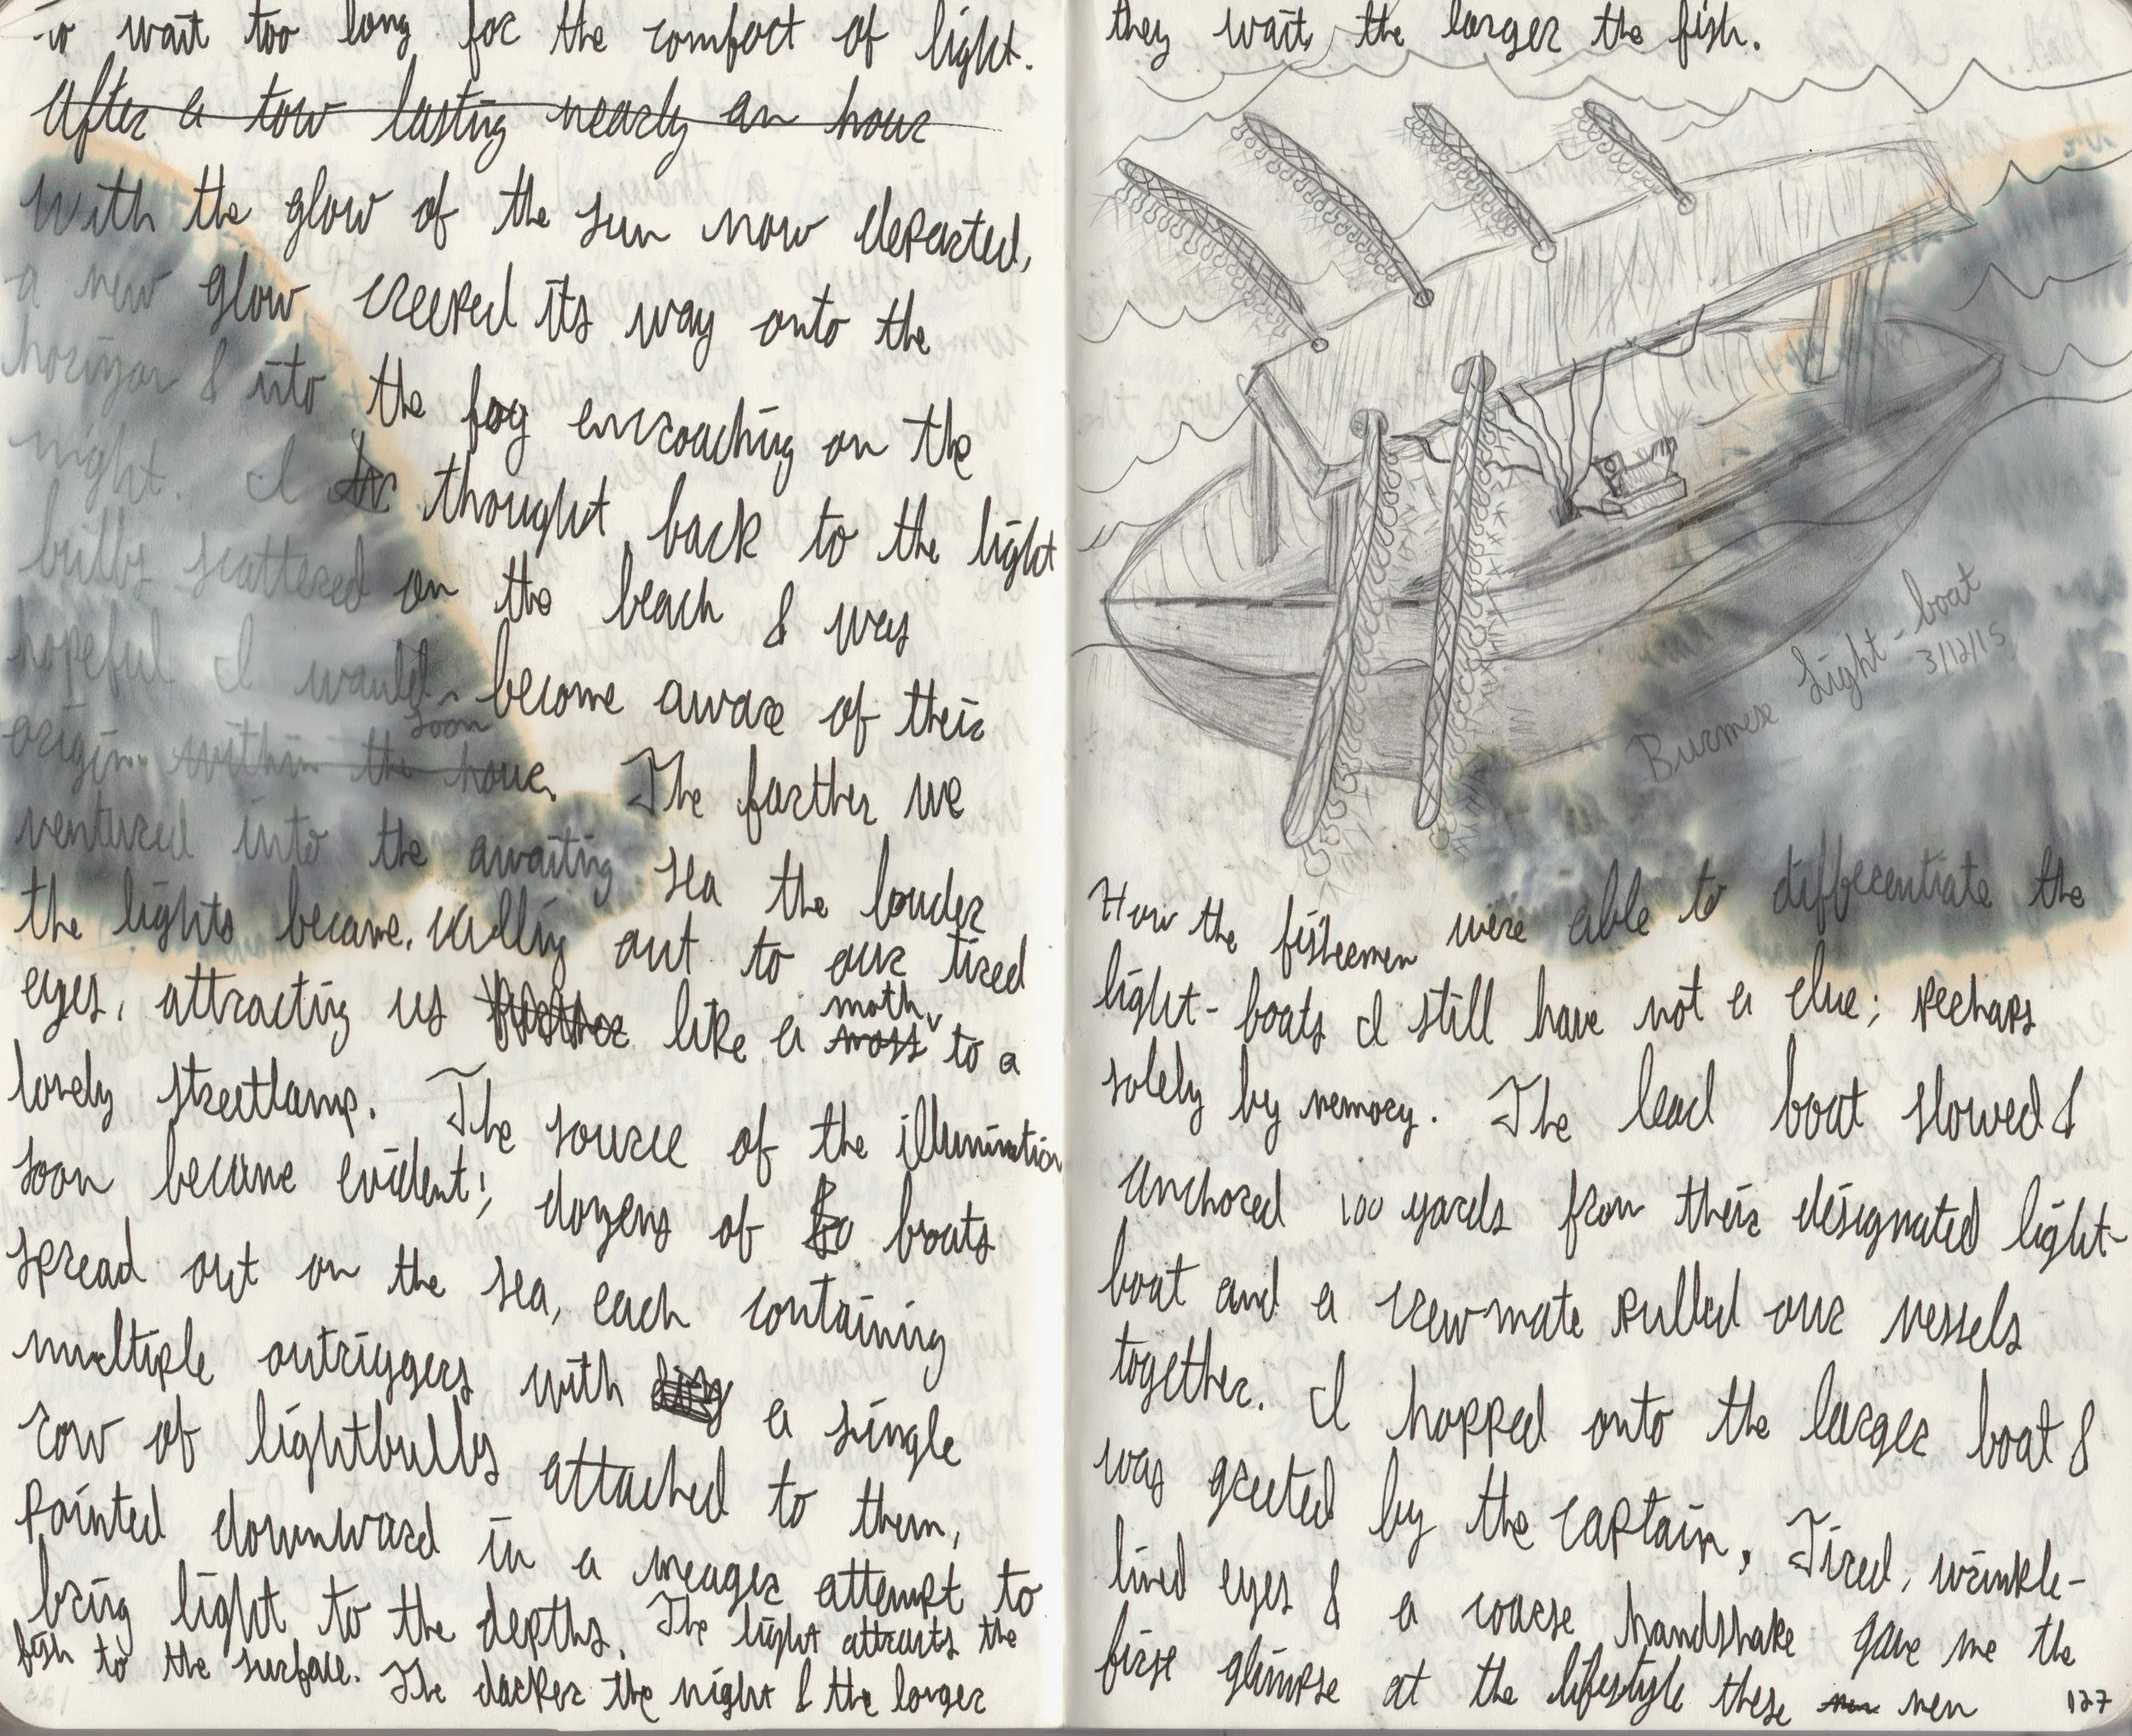 to wait too long for the comfort of light.
After a tow lasting nearly an hour
With the glow of the sun now departed,
a new glow creeped its way onto the
horizon & into the fog encroaching on the
night. I thought back to the light
bulbs scattered on the beach & was
hopeful I would soon become aware of their
origin. within the hour. The farther we
ventured into the awaiting sea the louder
the lights became, calling out to our tired
eyes, attracting us like a moss moth to a
lovely streetlamp. The source of the illumination
soon became evident; dozens of boats
spread out on the sea, each containing
multiple outriggers with a single
row of lightbulbs attached to them,
pointed downward in a meager attempt to
bring light to the depths. The light attracts the
fish to the surface. The darker the night & the longer
they wait, the larger the fish.
Burmese Light-boat
3/12/15
How the fisheemen were able to differentiate the
light-boats I still have not a clue; perhaps
solely by memory. The lead boat slowed &
anchored 100 yards from their designated light-
boat and a crewmate pulled our vessels
together. I hopped onto the larger boat &
was greeted by the captain. Tired, wrinkle-
lined eyes & a coarse handshake gave me the
first glimpse at the lifestyle these men
127